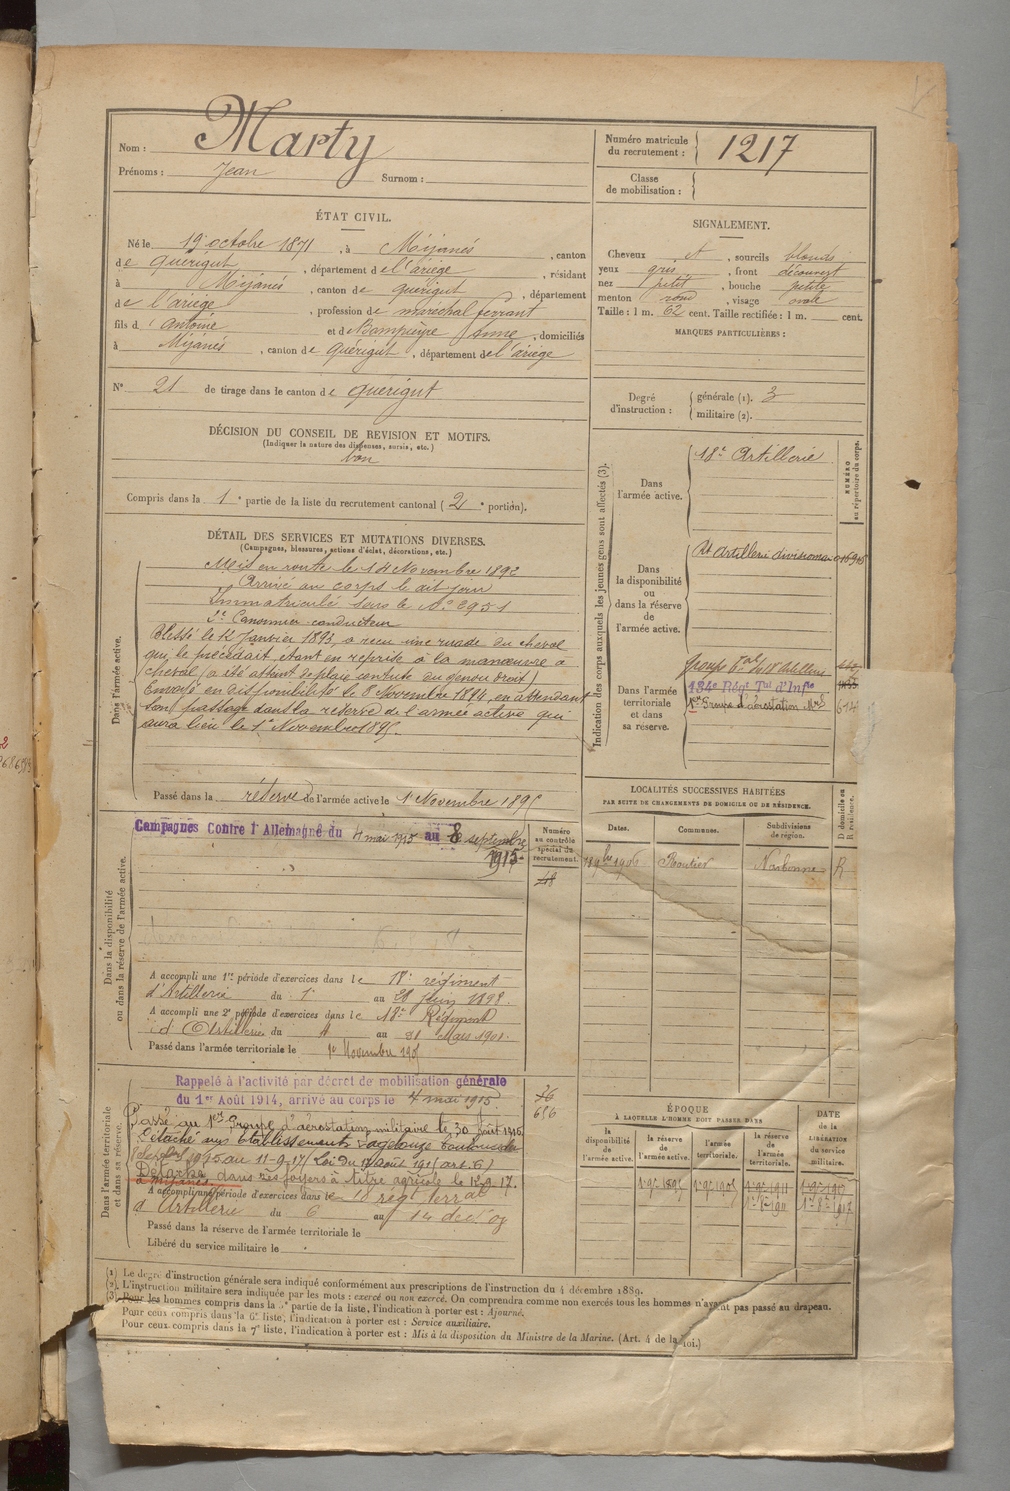 Nom : Marty
Prénoms : Jean Surnom :
Numéro matricule
du recrutement : 1217
Classe
de mobilisation :
ÉTAT CIVIL.
Né le 19 octobre 1871, à Mijanés, canton
de Quérigut, département de l'ariège, résidant
à Mijanés, canton de Quérigut, département
de l'ariège, profession de maréchal ferrant
fils d'Antoine et de Anne, domiciliés
à Mijanés, canton de Quérigut, département de l'ariège
N° 21 de tirage dans le canton de Quérigut
SIGNALEMENT.
Cheveux et, sourcils blonds
yeux gris, front découvert
nez petit, bouche petite
menton rond, visage ovale
Taille : 1 m. 62 cent. Taille rectifiée : 1 m. cent.
MARQUES PARTICULIÈRES :
Degré
d'instruction :
générale (1). 3
militaire (2).
DÉCISION DU CONSEIL DE REVISION ET MOTIFS.
(Indiquer la nature des dispenses, sursis, etc.)
bon
Compris dans la 1e partie de la liste du recrutement cantonal (2e portion).
DÉTAIL DES SERVICES ET MUTATIONS DIVERSES.
(Campagnes, blessures, actions d'éclat, décorations, etc.)
Dans l'armée active.
Mis en route le 14 Novembre 1892
Arrivé au corps le dit jour
Immatriculé sous le N° 2951
2e Canonnier conducteur
Blessé le 12 Janvier 1893, a reçu une ruade du cheval
qui le précédait, étant en reprise à la manœuvre à
cheval (a été atteint de plaie contuse du genou droit)
Envoyé en disponibilité le 8 Novembre 1894, en attendant
son passage dans la réserve de l'armée active qui
aura lieu le 1er Novembre 1895.
Passé dans la réserve de l'armée active le 1 Novembre 1895
Indication des corps auxquels les jeunes gens sont affectés (3).
NUMÉRO
au répertoire du corps.
Dans
l'armée active.
18e Artillerie
Dans
la disponibilité
ou
dans la réserve
de
l'armée active.
Dans l'armée
territoriale
et dans
sa réserve.
134e Régt Tal d'Infie
1er Groupe d'aérostation
614
LOCALITÉS SUCCESSIVES HABITÉES
PAR SUITE DE CHANGEMENTS DE DOMICILE OU DE RÉSIDENCE.
D domicile ou
R résidence.
Dates. Communes. Subdivisions
de région.
1906 Narbonne R
Dans la disponibilité
ou dans la réserve de l'armée active.
Campagnes Contre l'Allemagne du 4 mai 1915 au 8 septembre
1915
Numéro
au contrôle
spécial du
recrutement.
48
A accompli une 1re période d'exercices dans le 18e régiment
d'Artillerie du 1er au 28 juin 1898.
A accompli une 2e période d'exercices dans le 18e Régiment
d'Artillerie du 4 au 31 Mars 1901.
Passé dans l'armée territoriale le 1er Novembre 1905
Dans l'armée territoriale
et dans sa réserve.
Rappelé à l'activité par décret de mobilisation générale
du 1er Août 1914, arrivé au corps le 4 mai 1915.
Passé au 1er Groupe d'aérostation militaire le 30 Août 1915.
Détaché aux Etablissements Toulouse
du 1915 au 11-9-17 (Loi du 17 août 1915 art. 6)
Détaché dans ses foyers à titre agricole le 12-9-17.
à Mijanés
A accompli une période d'exercices dans le 18 rég. terral
d'Artillerie du 6 au 14 déc.
Passé dans la réserve de l'armée territoriale le
Libéré du service militaire le
ÉPOQUE
À LAQUELLE L'HOMME DOIT PASSER DANS
la
disponibilité
de
l'armée active.
la réserve
de
l'armée active.
l'armée
territoriale.
la réserve
de
l'armée
territoriale.
DATE
de la
LIBÉRATION
du service
militaire.
(1) Le degré d'instruction générale sera indiqué conformément aux prescriptions de l'instruction du 4 décembre 1889.
(2) L'instruction militaire sera indiquée par les mots : exercé ou non exercé. On comprendra comme non exercés tous les hommes n'ayant pas passé au drapeau.
(3) Pour les hommes compris dans la 5e partie de la liste, l'indication à porter est : Ajourné.
Pour ceux compris dans la 6e liste, l'indication à porter est : Service auxiliaire.
Pour ceux compris dans la 7e liste, l'indication à porter est : Mis à la disposition du Ministre de la Marine. (Art. 4 de la loi.)